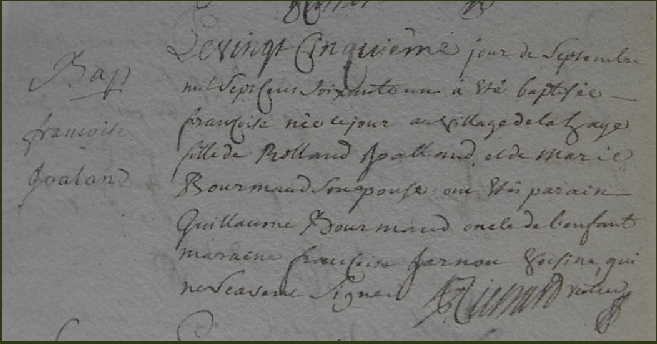 Bap
françoise
Le vingt Cinquiême jour de Septembre
mil Sept Cens Soixante un a êté baptisée
françoise née le jour au village de la haye
fille de Rolland et de Marie
Bourmaud Son epouse ont êtés parain
Guillaume Bourmaud oncle de l'enfant
maraine françoise Voisine, qui
ne Scavent Signer